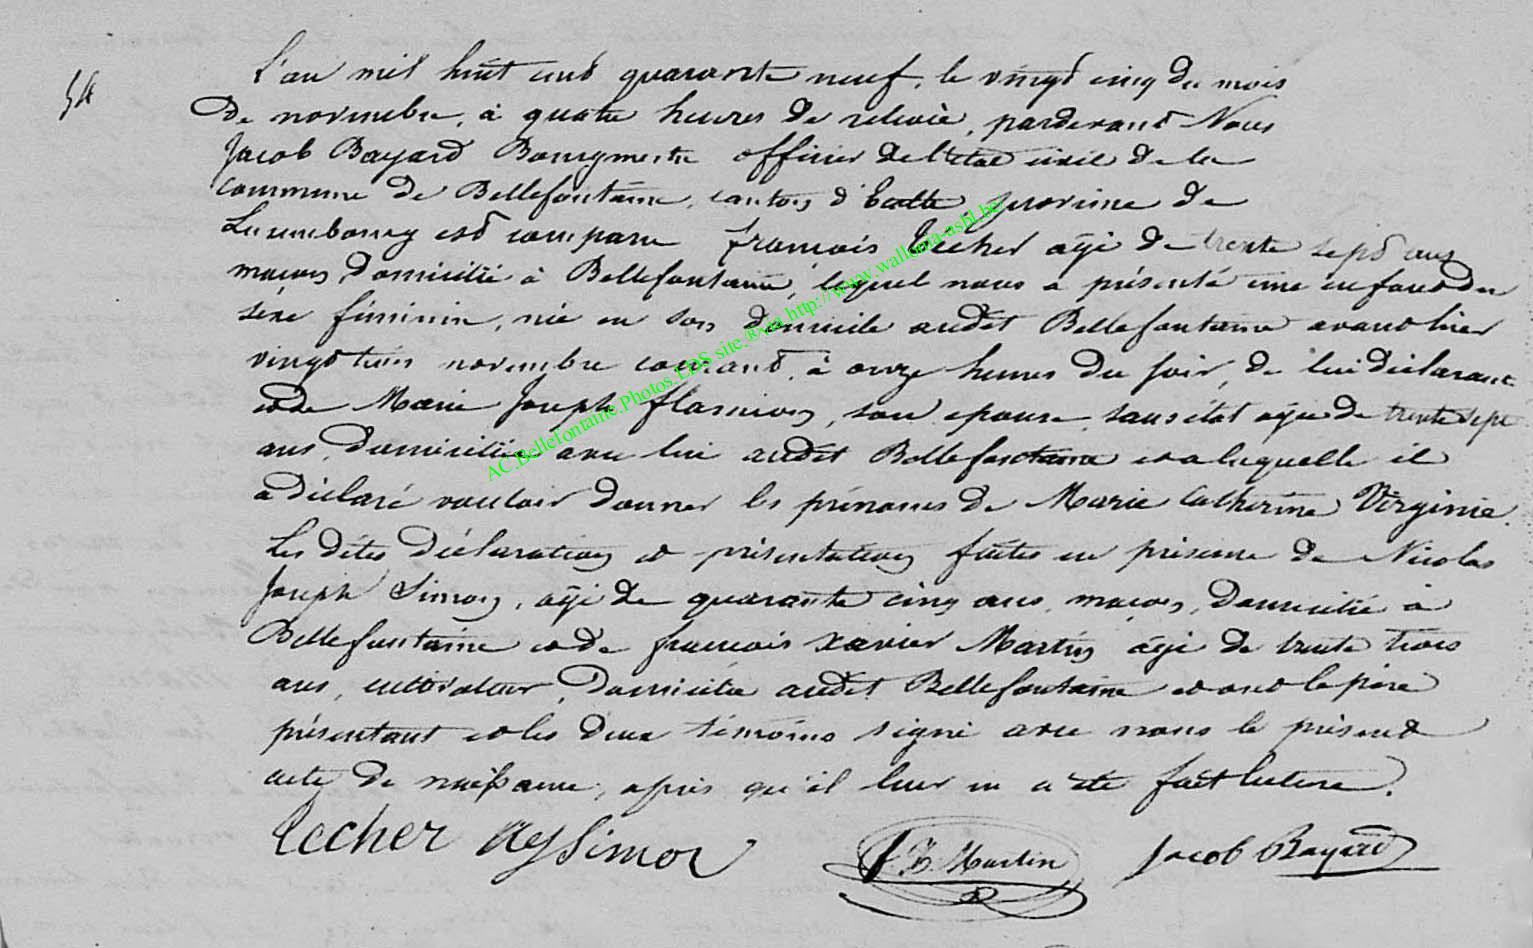 54
L'an mil huit cent quarante neuf, le vingt cinq du mois
de novembre, à quatre heures de relevée, pardevant Nous
Jacob Bayard Bourgmestre officier de l'état civil de la
Commune de Bellefontaine, canton d'Etalle, province de
Luxembourg est comparu françois Lecher agé de trente sept ans
maçon, domicilié à Bellefontaine, lequel nous a présenté une enfant du
sexe féminin, née en son domicile audit Bellefontaine avant hier
vingt trois novembre courant, à onze heures du soir, de lui déclarant
et de Marie Joseph flamion, son epouse, sans état agée de trente sept
ans, domiciliée avec lui audit Bellefontaine et a laquelle il
a déclaré vouloir donner les prénoms de Marie Catherine Virginie.
Les dites déclaration et présentation faites en présence de Nicolas
Joseph Simon, agé de quarante cinq ans, maçon, domicilié à
Bellefontaine et de françois Xavier Martin agé de trente trois
ans, cultivateur, domicilié audit Bellefontaine et ont le père
présentant et les deux témoins signé avec nous le présent
acte de naissance, après qu'il leur en a été fait lecture.
Lecher Simon F. X. Martin Jacob Bayard
AC.Bellefontaine.Photos.LDS site.®via http://www.wallonia-asbl.be/